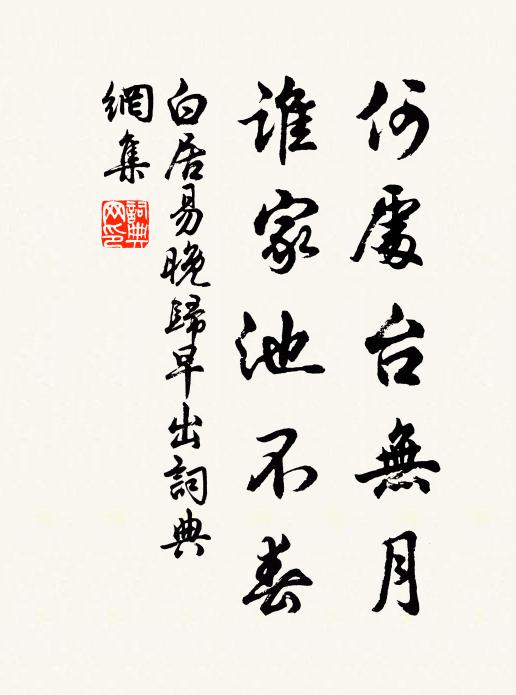 何處台無月
誰家池不春
白居易晚歸早出詞典
網集
詞典
网印